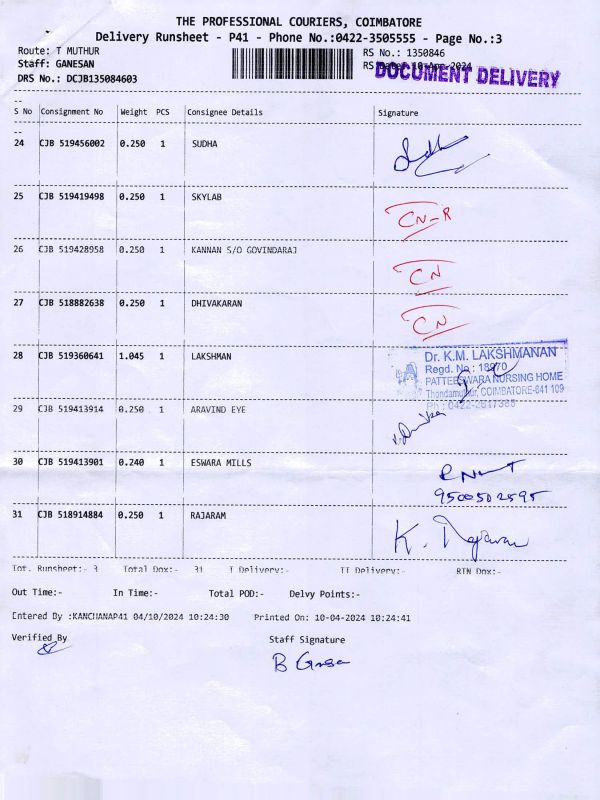 THE PROFESSIONAL COURIERS, COIMBATORE
Delivery Runsheet - P41 - Phone No.:0422-3505555 - Page No.:3
Route: T MUTHUR
RS No.: 1350846
Staff: GANESAN
RS Date: 10-Apr-2024
DOCUMENT DELIVERY
DRS No.: DCJB135084603
S No Consignment No Weight PCS Consignee Details Signature
24 CJB 519456002 0.250 1 SUDHA
25 CJB 519419498 0.250 1 SKYLAB
CN-R
26 CJB 519428958 0.250 1 KANNAN S/O GOVINDARAJ
CN
27 CJB 518882638 0.250 1 DHIVAKARAN
CN
28 CJB 519360641 1.045 1 LAKSHMAN
Dr. K.M. LAKSHMANAN
Regd. No : 18970
PATTEESWARA NURSING HOME
Thondamuthur, COIMBATORE-641 109
29 CJB 519413914 0.250 1 ARAVIND EYE
30 CJB 519413901 0.240 1 ESWARA MILLS
9500502595
31 CJB 518914884 0.250 1 RAJARAM
K. Rajaram
Tot. Runsheet:- 3 Total Dox:- 31 I Delivery:- II Delivery:- RTN Dox:-
Out Time:- In Time:- Total POD:- Delvy Points:-
Entered By :KANCHANAP41 04/10/2024 10:24:30 Printed On: 10-04-2024 10:24:41
Verified By Staff Signature